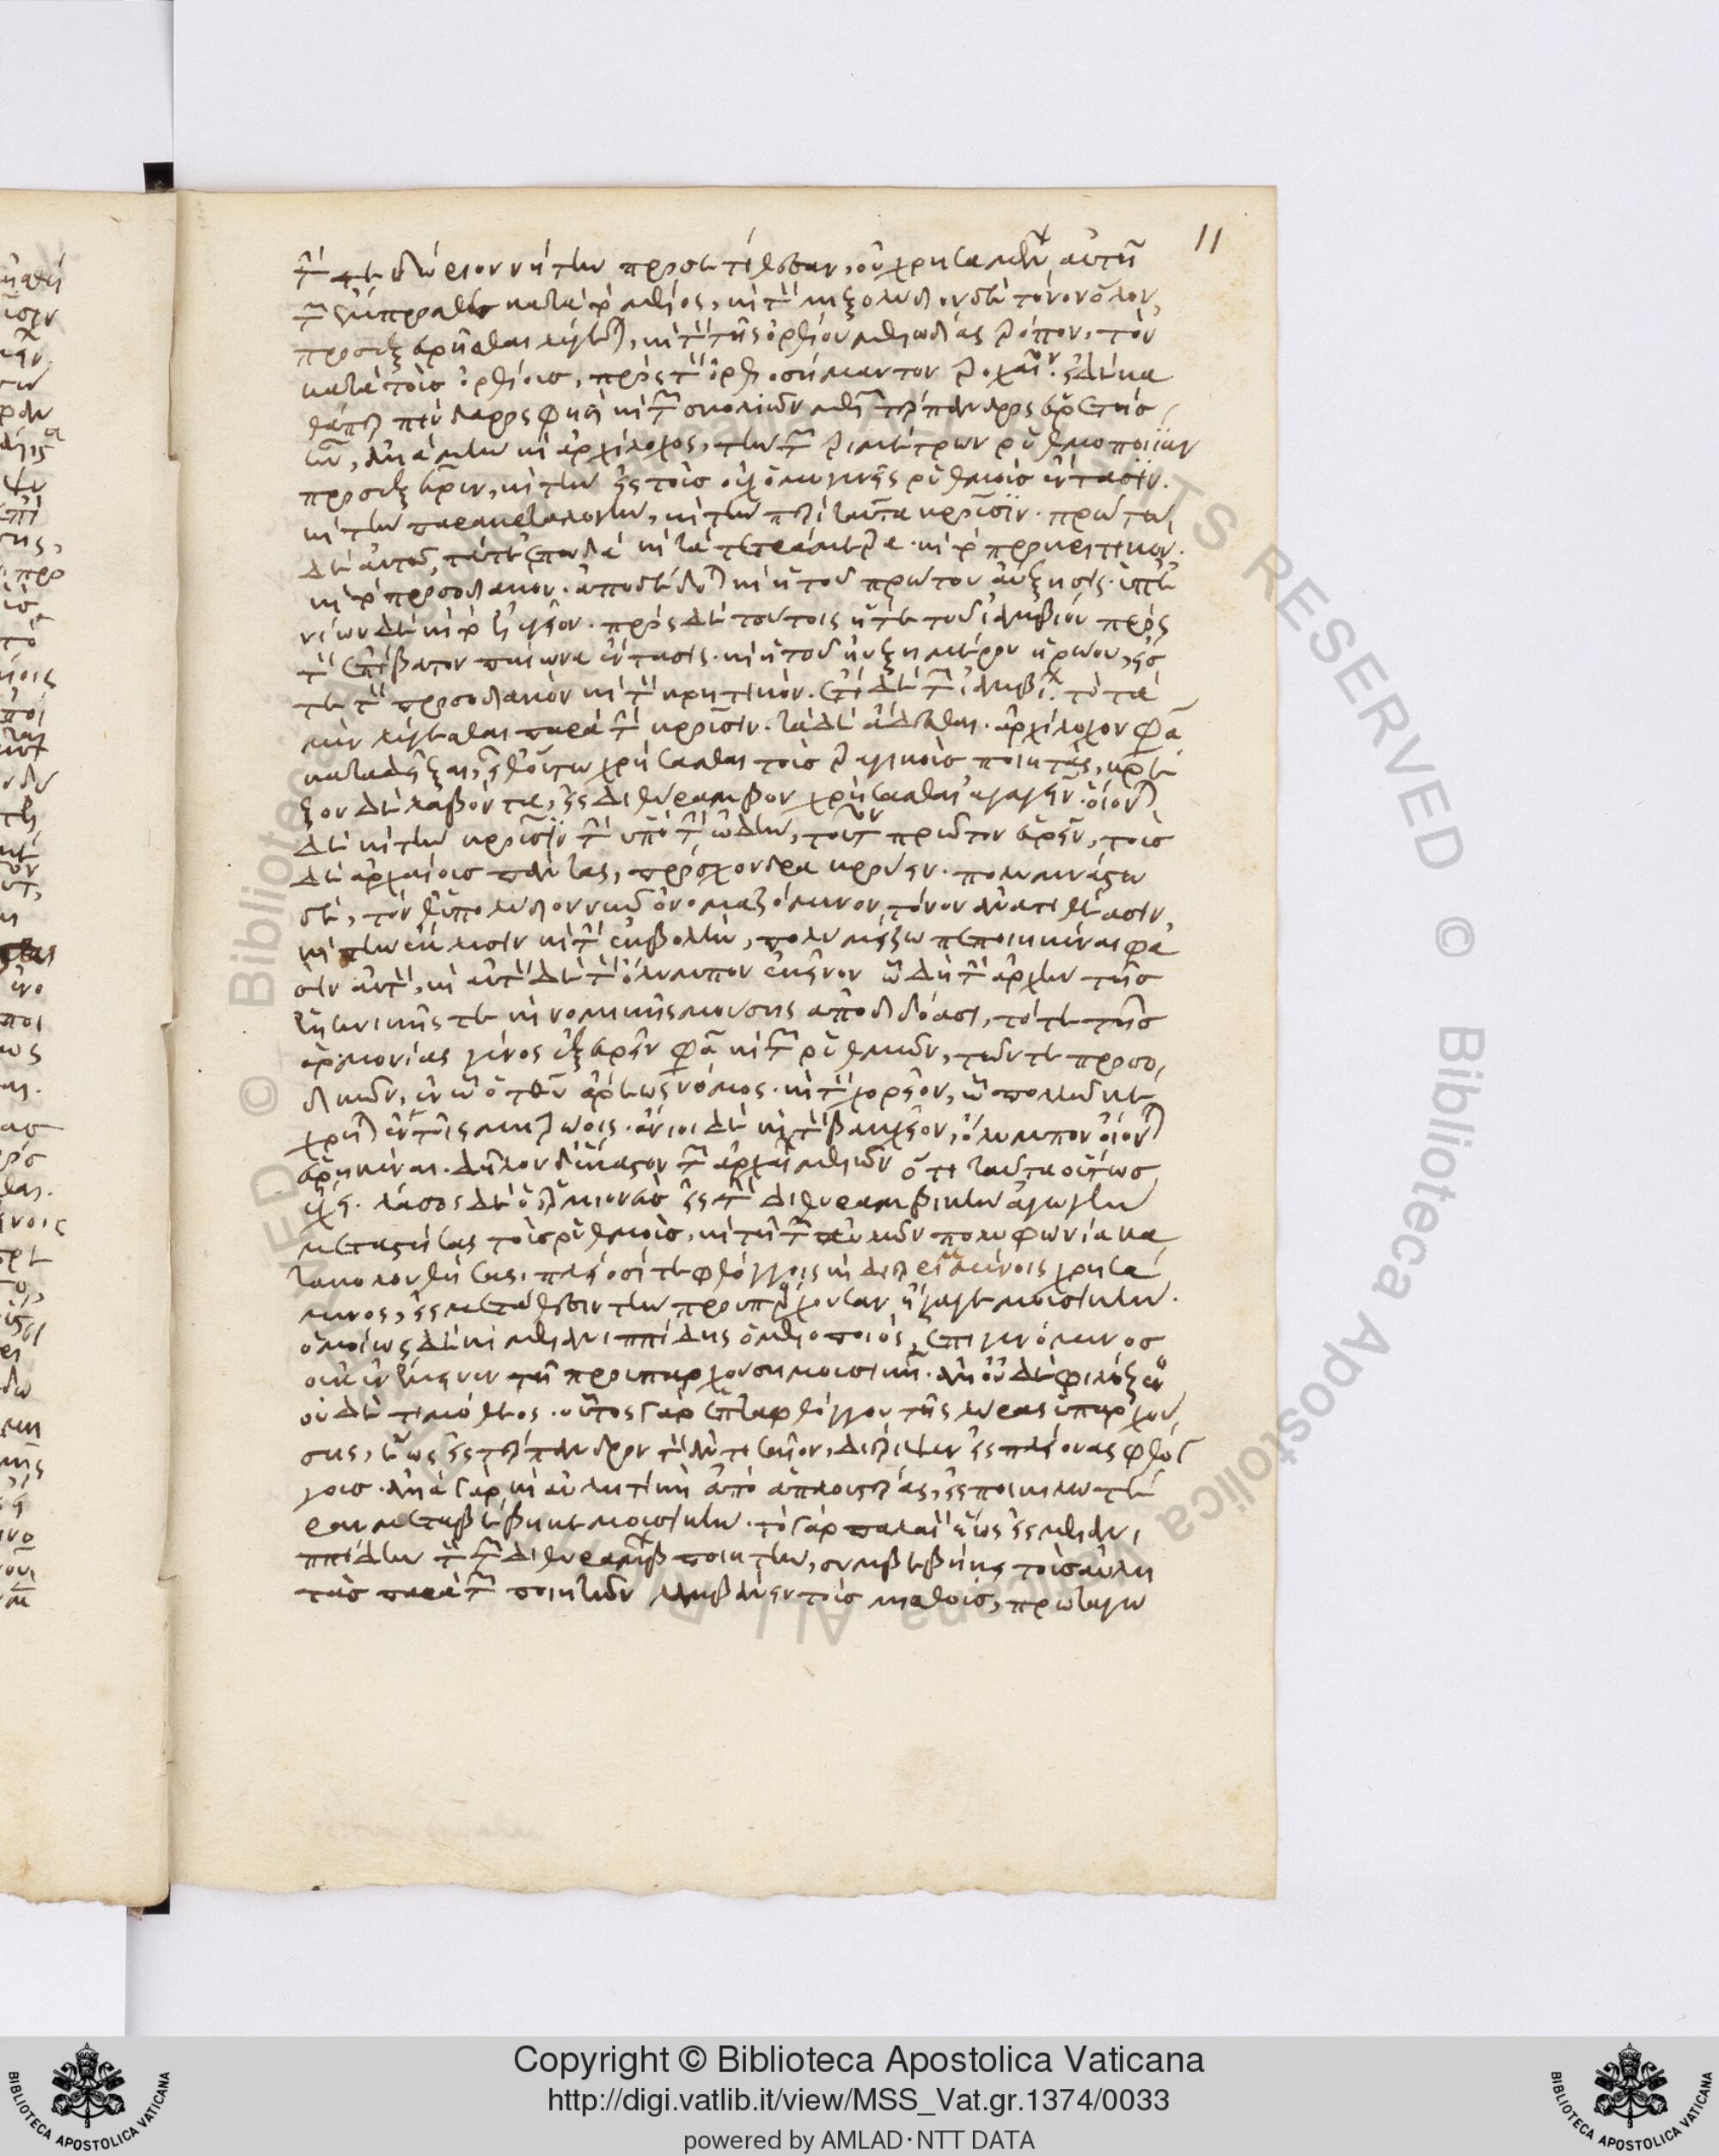 11
τὴν τε δώριον νήτην προσετίθεσαν, οὐ χρησαμένων αὐτῆ
τῶν ἔμπροσθεν κατὰ τὸ μέλος, καὶ τὸν μιξολύδιον δὲ τόνον ὅλον
προσεξευρῆσθαι λέγεται, καὶ τὸν τῆς ὀρθίου μελωδίας τρόπον, τὸν
κατὰ τοὺς ὀρθίους, πρὸς τὸν ὀρθιοσήμαντον τροχαῖον. εἰ δὲ κα
θάπερ πίνδαρός φησι καὶ τῶν σκολιῶν μελῶν τέρπανδρος εὑρετὴς
ἦν, ἀλλὰ μὴν καὶ ἀρχίλοχος, τὴν τῶν τριμέτρων ῥυθμοποιΐαν
προσεξεῦρεν, καὶ τὴν εἰς τοὺς οὐχ ὁμογενεῖς ῥυθμοὺς ἔντασιν.
καὶ τὴν παρακαταλογὴν, καὶ τὴν περὶ ταῦτα κροῦσιν. πρώτω
δὲ αὐτῶ, τά τε ἐπωδὰ καὶ τὰ τετράμετρα. καὶ τὸ προκριτικὸν.
καὶ τὸ προσοδιακὸν. ἀποδέδοται καὶ ἡ τοῦ πρώτου αὔξησις. ὑπ' ἐ
νίων δὲ καὶ τὸ ἐλεγεῖον. πρὸς δὲ τούτοις ἥ τε τοῦ ἰαμβείου πρὸς
τὸν ἐπιβατὸν παίωνα ἔντασις. καὶ ἡ τοῦ ηὐξημένου ἡρώου, εἴς
τε τὸν προσοδιακὸν καὶ τὸν κρητικόν. ἔτι δὲ τῶν ἰαμβείων τὸ τὰ
μὲν λέγεσθαι παρὰ τὴν κροῦσιν. τὰ δὲ ἄδεσθαι. ἀρχίλοχόν φασι
καταδεῖξαι, εἶθ' οὕτω χρήσασθαι τοὺς τραγικοὺς ποιητάς, κρέ
ξον δὲ λαβόντα, εἰς διθύραμβον χρήσασθαι ἀγαγεῖν. οἴονται
δὲ καὶ τὴν κροῦσιν τὴν ὑπὸ τὴν ὠδὴν, τοῦτον πρῶτον εὑρεῖν, τοὺς
δὲ ἀρχαίους πάντας, πρόσχορδα κρούειν. πολυμνάστω
δὲ, τόν θ' ὑπολύδιον νῦν ὀνομαζόμενον τόνον ἀνατιθέασιν,
καὶ τὴν ἔκλυσιν καὶ τὴν ἐκβολὴν, πολὺ μείζω πεποιηκέναι φα
σὶν αὐτὸν, καὶ αὐτὸν δὲ τὸν ὄλυμπον ἐκεῖνον ᾧ δὴ τὴν ἀρχὴν τῆς
ἑλληνικῆς τε καὶ νομικῆς μούσης ἀποδιδόασι, τό τε τῆς
ἁρμονίας γένος ἐξευρεῖν φασι καὶ τῶν ῥυθμῶν, τόν τε προσο
διακὸν, ἐν ᾧ ὁ τοῦ ἄρεως νόμος. καὶ τὸν χορεῖον, ᾧ πολλῶ κέ
χρηται ἐν τοῖς μητρώοις. ἔνιοι δὲ καὶ τὸν βακχεῖον, ὄλυμπον οἴονται
εὑρηκέναι. δηλοῖ δ' ἕκαστον τῶν ἀρχαίων μελῶν ὅτι ταῦτα οὕτως
ἔχει. λάσος δὲ ὁ ἑρμιονεὺς εἰς τὴν διθυραμβικὴν ἀγωγὴν
μεταστήσας τοὺς ῥυθμοὺς, καὶ τῇ τῶν αὐλῶν πολυφωνία κα
τακολουθήσας, πλείοσί τε φθόγγοις καὶ διερριμμένοις χρησά
μενος, εἰς μετάθεσιν τὴν προϋπάρχουσαν ἤγαγε μουσικὴν.
ὁμοίως δὲ καὶ μελανιππίδης ὁ μελοποιὸς, ἐπιγενόμενος
οὐκ ἐνέμεινεν τῆ προϋπαρχούση μουσικῆ. ἀλλ' οὐδὲ φιλόξενος
οὐδὲ τιμόθεος. οὗτος γὰρ ἑπταφθόγγου τῆς λύρας ὑπαρχού
σης, ἕως εἰς τέρπανδρον τὸν ἀντισσαῖον, διέρριψεν εἰς πλείονας φθόγ
γους. ἀλλὰ γὰρ καὶ αὐλητικὴ ἀπὸ ἁπλουστέρας, εἰς ποικιλωτέ
ραν μεταβέβηκε μουσικὴν. τὸ γὰρ παλαιὸν ἕως εἰς μελανι
ππίδην τὸν τῶν διθυράμβων ποιητὴν, συμβεβήκει τοὺς αὐλη
τὰς παρὰ τῶν ποιητῶν λαμβάνειν τοὺς μισθοὺς, πρωταγω
Copyright © Biblioteca Apostolica Vaticana
http://digi.vatlib.it/view/MSS_Vat.gr.1374/0033
powered by AMLAD·NTT DATA